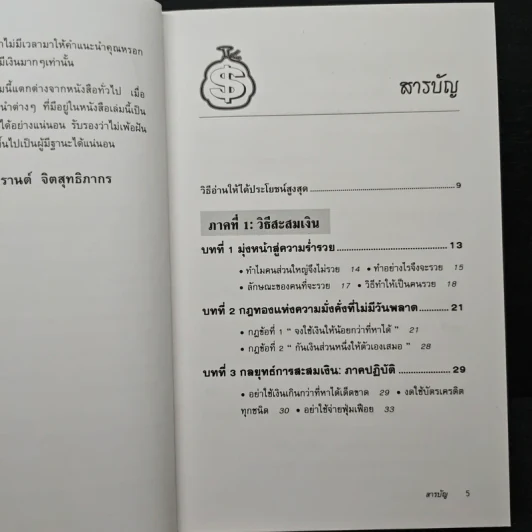 าไม่มีเวลามาให้คำแนะนำคุณหรอก
มีเงินมากๆเท่านั้น
มนี้แตกต่างจากหนังสือทั่วไป เมื่อ
นำต่างๆ ที่มีอยู่ในหนังสือเล่มนี้เป็น
ได้อย่างแน่นอน รับรองว่าไม่เพ้อฝัน
ขึ้นไปเป็นผู้มีฐานะได้แน่นอน
รานต์ จิตสุทธิภากร
$
สารบัญ
วิธีอ่านให้ได้ประโยชน์สูงสุด 9
ภาคที่ 1: วิธีสะสมเงิน
บทที่ 1 มุ่งหน้าสู่ความร่ำรวย 13
• ทำไมคนส่วนใหญ่จึงไม่รวย 14 • ทำอย่างไรจึงจะรวย 15
• ลักษณะของคนที่จะรวย 17 • วิธีทำให้เป็นคนรวย 18
บทที่ 2 กฎทองแห่งความมั่งคั่งที่ไม่มีวันพลาด 21
• กฎข้อที่ 1 " จงใช้เงินให้น้อยกว่าที่หาได้ " 21
• กฎข้อที่ 2 " กันเงินส่วนหนึ่งให้ตัวเองเสมอ " 28
บทที่ 3 กลยุทธ์การสะสมเงิน: ภาคปฏิบัติ 29
• อย่าใช้เงินเกินกว่าที่หาได้เด็ดขาด 29 • งดใช้บัตรเครดิต
ทุกชนิด 30 • อย่าใช้จ่ายฟุ่มเฟือย 33
สารบัญ 5